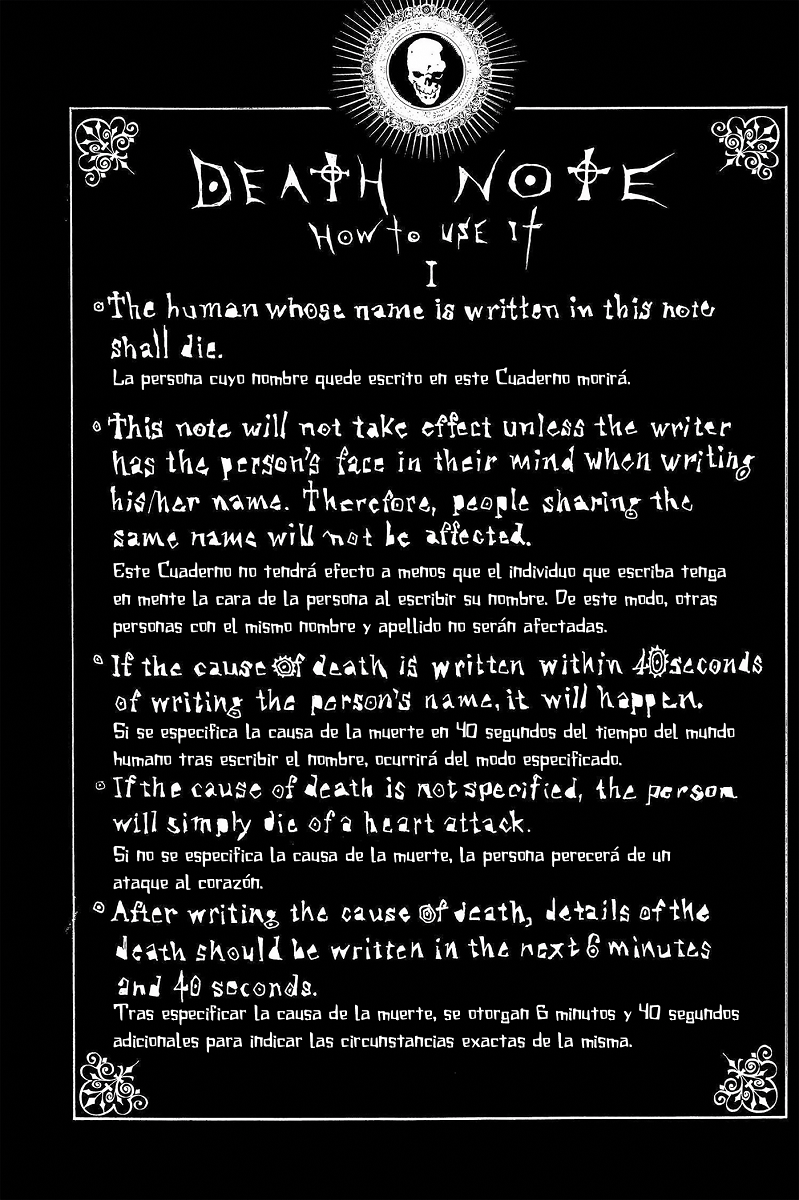 DEATH NOTE
HOW TO USE IT
I
The human whose name is written in this note
shall die.
La persona cuyo nombre quede escrito en este Cuaderno morirá.
This note will not take effect unless the writer
has the person's face in their mind when writing
his/her name. Therefore, people sharing the
same name will not be affected.
Este Cuaderno no tendrá efecto a menos que el individuo que escriba tenga
en mente la cara de la persona al escribir su nombre. De este modo, otras
personas con el mismo nombre y apellido no serán afectadas.
If the cause of death is written within 40 seconds
of writing the person's name, it will happen.
Si se especifica la causa de la muerte en 40 segundos del tiempo del mundo
humano tras escribir el nombre, ocurrirá del modo especificado.
If the cause of death is not specified, the person
will simply die of a heart attack.
Si no se especifica la causa de la muerte, la persona perecerá de un
ataque al corazón.
After writing the cause of death, details of the
death should be written in the next 6 minutes
and 40 seconds.
Tras especificar la causa de la muerte, se otorgan 6 minutos y 40 segundos
adicionales para indicar las circunstancias exactas de la misma.